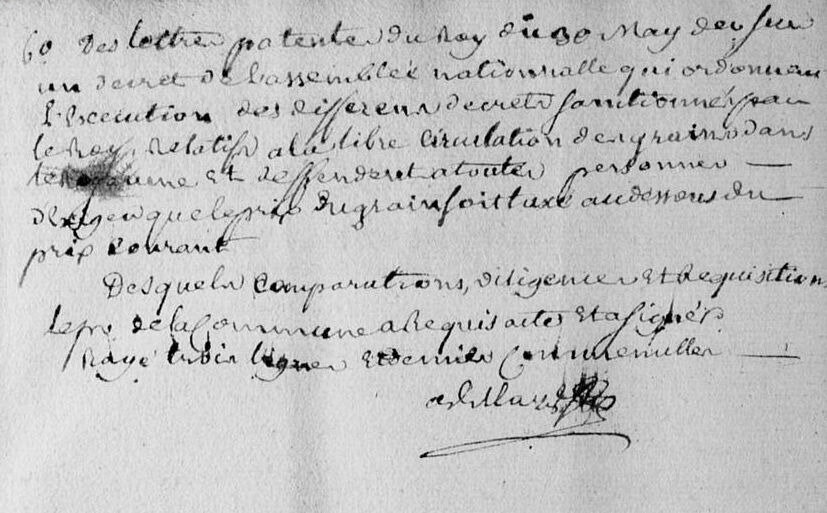 6º Des lettres patentes du Roy du 30 May der sur
un decret de l'assemblée nationnalle qui ordonne
l'Execution des differens decrets sanctionnés par
le Roy, Relatifs a la libre circulation des grains dans
le Royaume Et deffendent a toutes personnes
d'Exiger que le prix du grain soit taxé au dessous du
prix courant
Desquels comparutions, diligences Et Requisitions
le pr. de la Commune a Requis acte Et a signé.
Rayé trois lignes Et demies Comme nulles